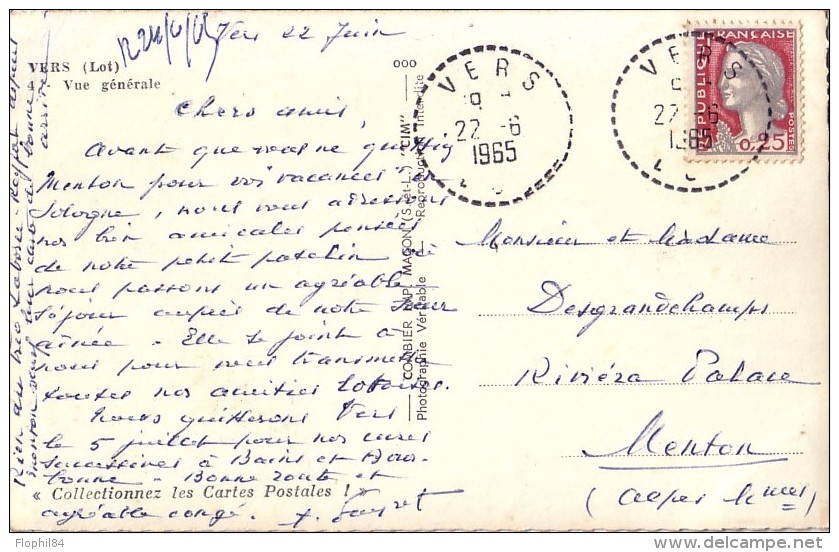 Vers 22 Juin
VERS (Lot)
4 Vue générale
Chers amis,
Avant que vous ne quittiez
Menton pour vos vacances en
Sologne, nous vous adressons
nos bien amicales pensées
de notre petit patelin où
nous passons un agréable
séjour auprès de notre sœur
aînée - Elle se joint à
nous pour vous transmettre
toutes nos amitiés Lotoises.
Nous quitterons Vers
le 5 juillet pour nos cures
successives à Bains et Bour-
bonne - Bonne route et
« Collectionnez les Cartes Postales ! »
agréable congé.
COMBIER IMP. MACON (S.-et-L.) "CIM"
Photographie Véritable - Reproduction Interdite
VERS
22 -6
1965
VERS
22 -6
1965
RÉPUBLIQUE FRANÇAISE
0,25
POSTES
Monsieur et Madame
Desgrandchamps
Riviéra Palace
Menton
(Alpes Mmes)
Flophil84
delcampe.net